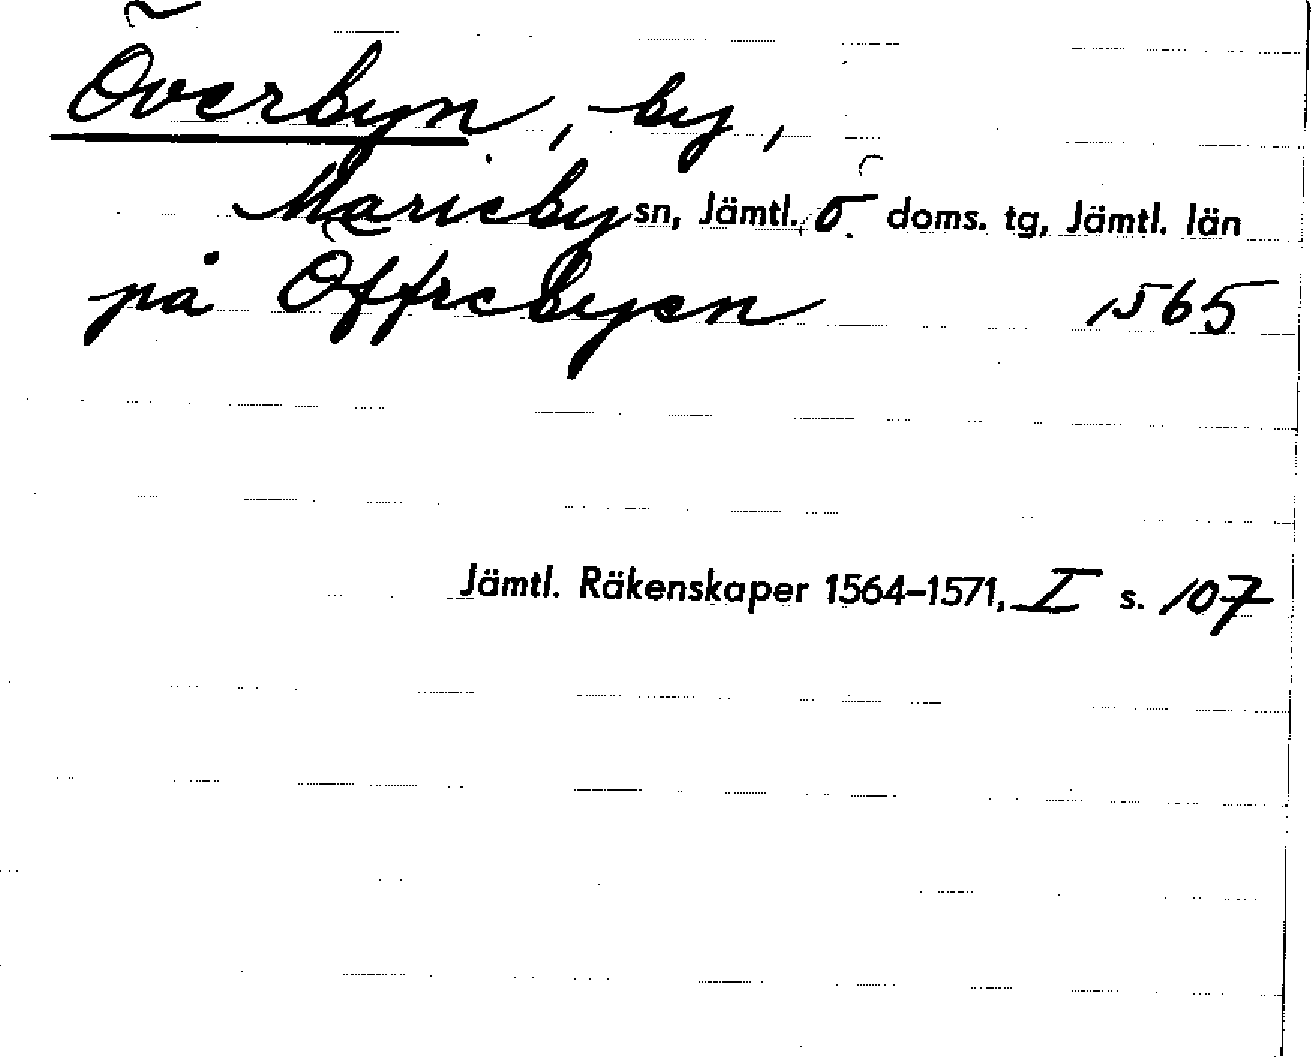 Överbyn, by,
Marieby sn, Jämtl. ö. doms. tg, Jämtl. län
på Öffrebyen 1565
Jämtl. Räkenskaper 1564-1571, I s. 107